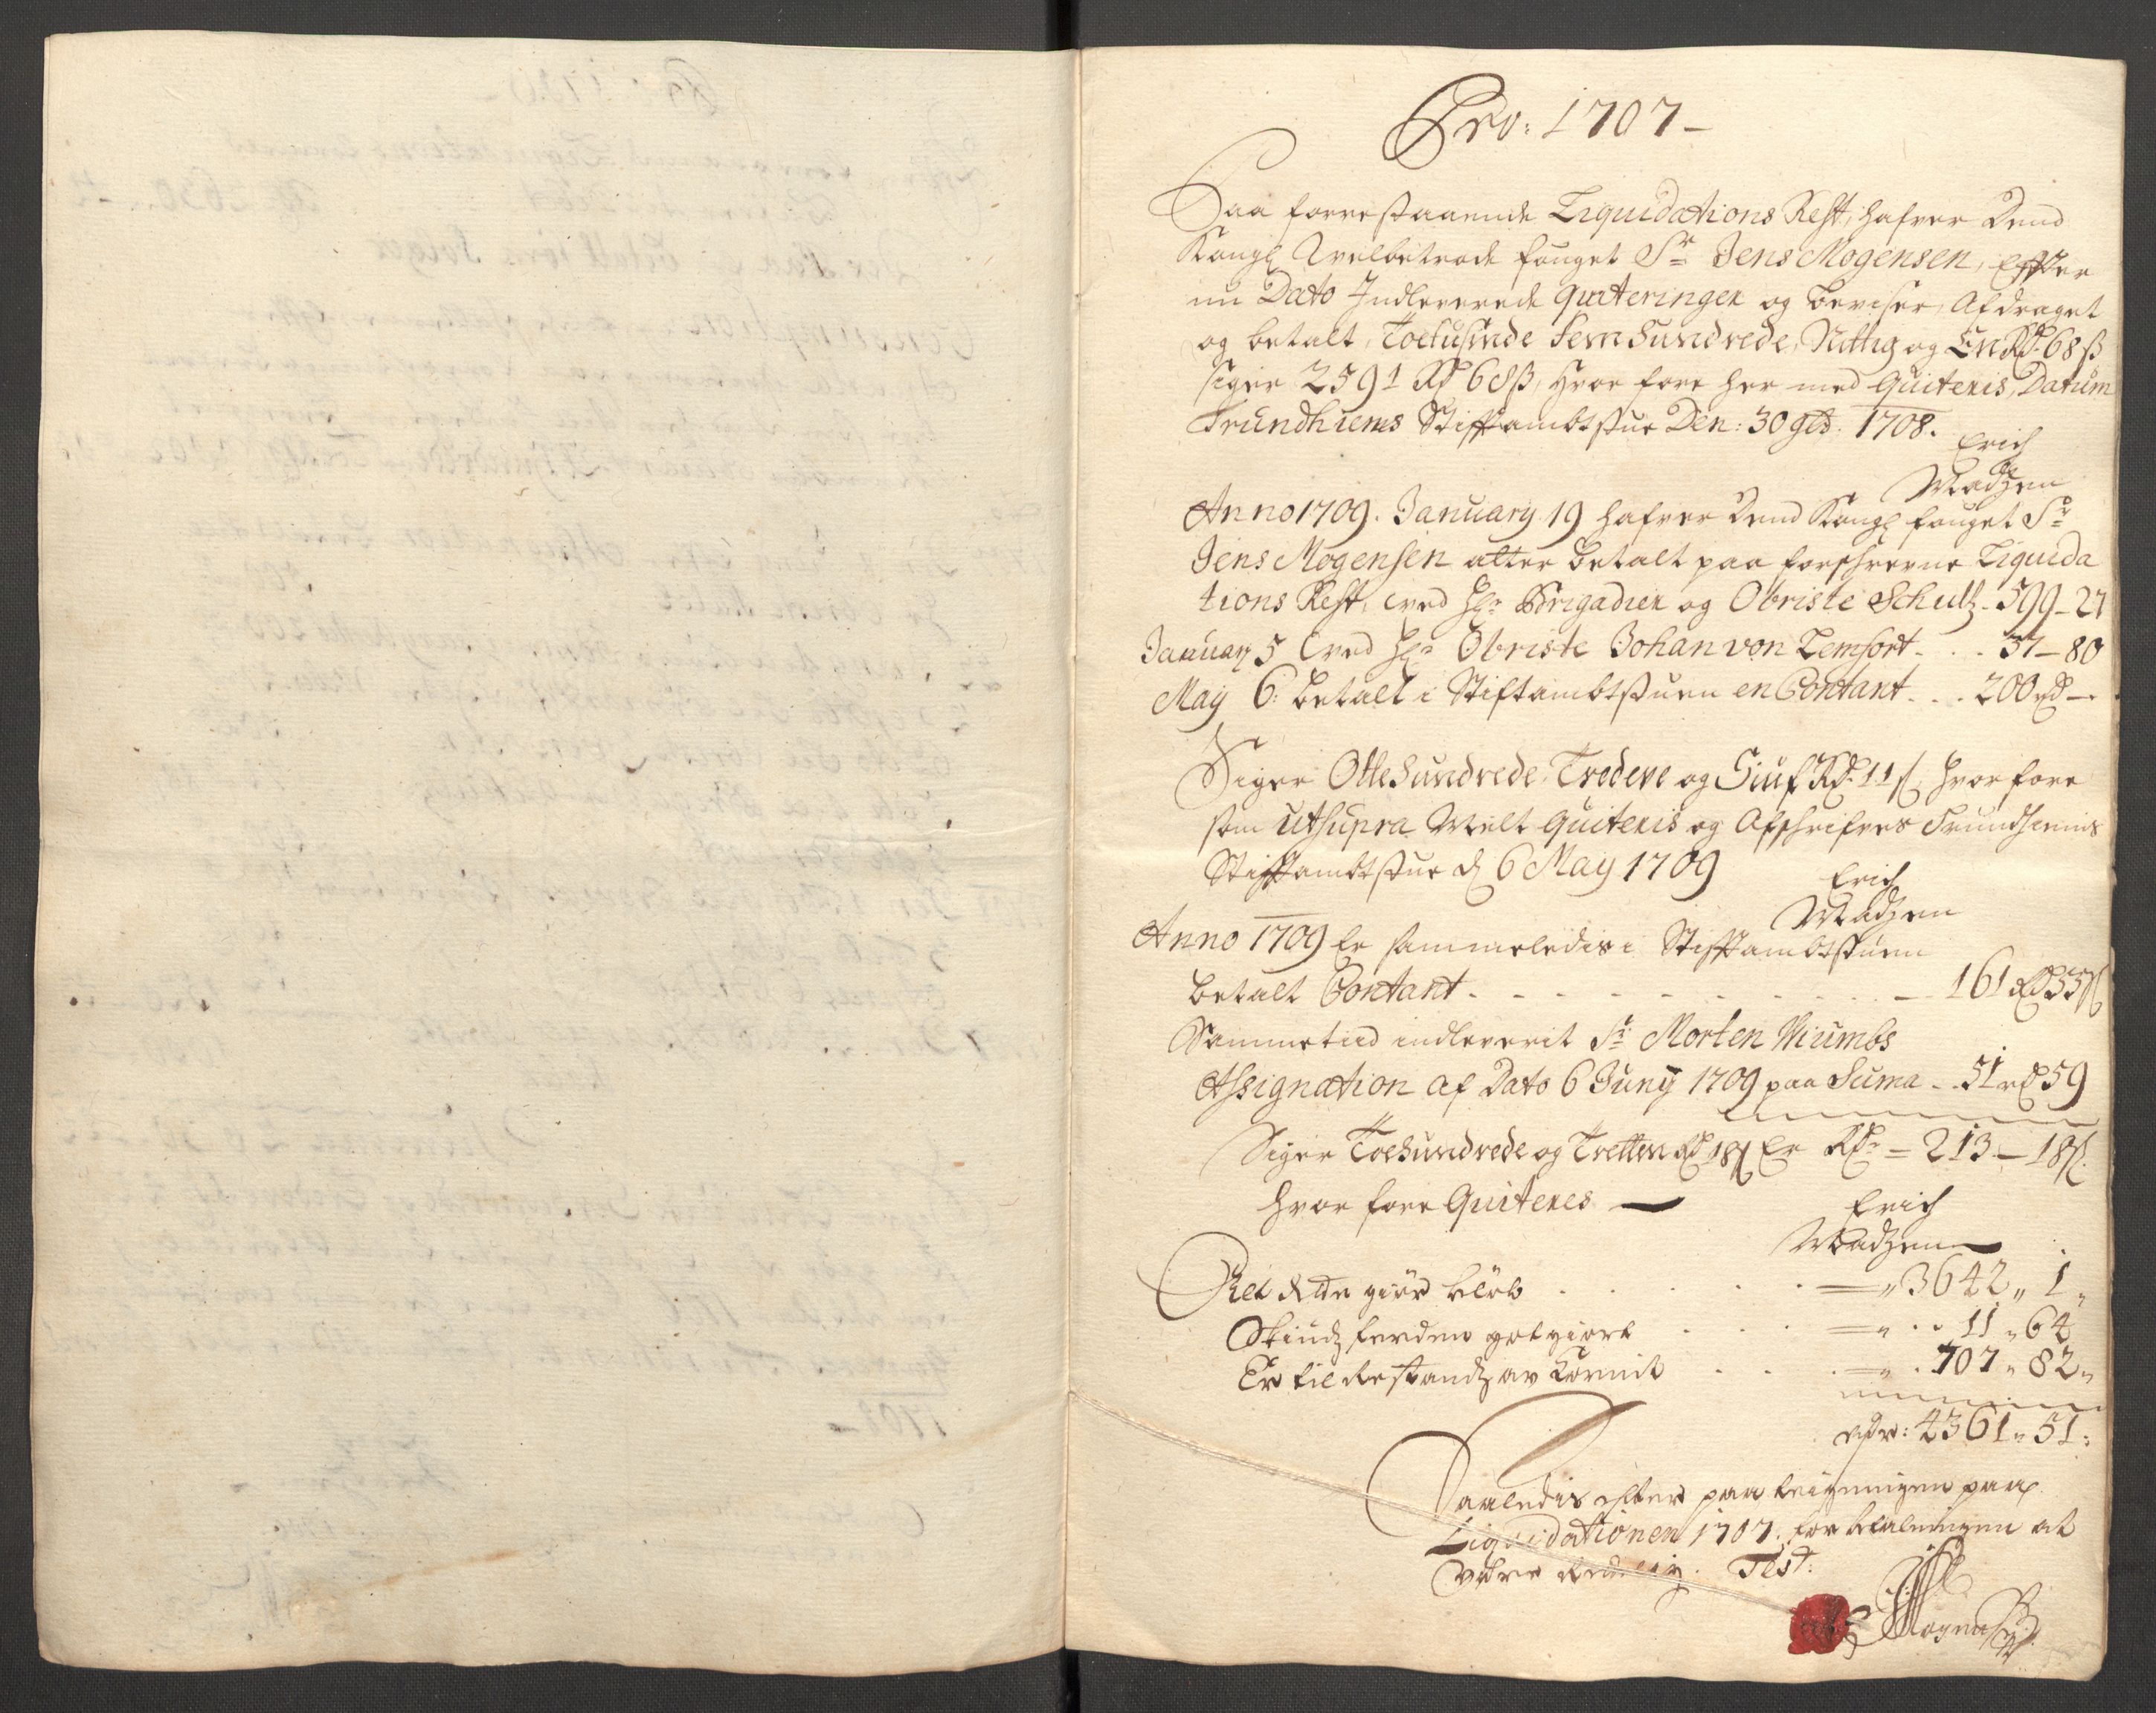 Pro: 1707 –
Paa forrestaaende Liquidations Rest, hafver Dend
Kongl Velbetrode fouget Sr Jens Mogensen, Effter
nu Dato Indleverede quiteringer og beviser, Afdraget
og betalt, Toetusinde Fem Hundrede, Nittig og En Rd. 68 ß
siger 2591 Rd 68 ß, hvor fore her med Quiteris, Datum
Trundhiems Stiftambtstue Den: 30 1708.
Erich
Madzen
Anno 1709. January 19 hafver Dend Kongl fouget Sr
Jens Mogensen atter betalt paa forschrevne Liquida
tions Rest, ved Hr Brigadier og Obriste Schultz - 599 - 27
January 5 ved Hr Obriste Johan von Lemfort - . . 37 - 80
May 6: betalt i Stiftambtstuen en Contant . . . 200 rd -
Siger Otte Hundrede, Tredeve og Siuf Rd. 11 ß, hvor fore
som utsupra Vielt quiteris og Afschrifves Trundhiems
Stiftambtstue d 6 May 1709
Erich
Madzen
Anno 1709 Er sammeledis i Stiftambtstuen
betalt Contant . - - - - - - - 161 rd 55 ß
Sammetiid indleverit Sr Morten Wiumbs
Assignation af Dato 6 Juny 1709 paa Suma - . 51 rd 59
Siger Toe Hundrede og Tretten Rd 18 ß Er Rdr = 213 - 18 ß.
hvor fore Quiteres —
Erich
Madzen
giör belöb . . . . = „ 3642 „ 1 „
Skiudzferden got giort . . . = „ . . 11 „ 64
Er til Restandz av Kornit . . . = „ . 707 „ 82 „
rdr: 4361 „ 51:
Saaledis efter paa teigningen paa
Liquidationen 1707. for betalningen at
være Test:
Mogensen